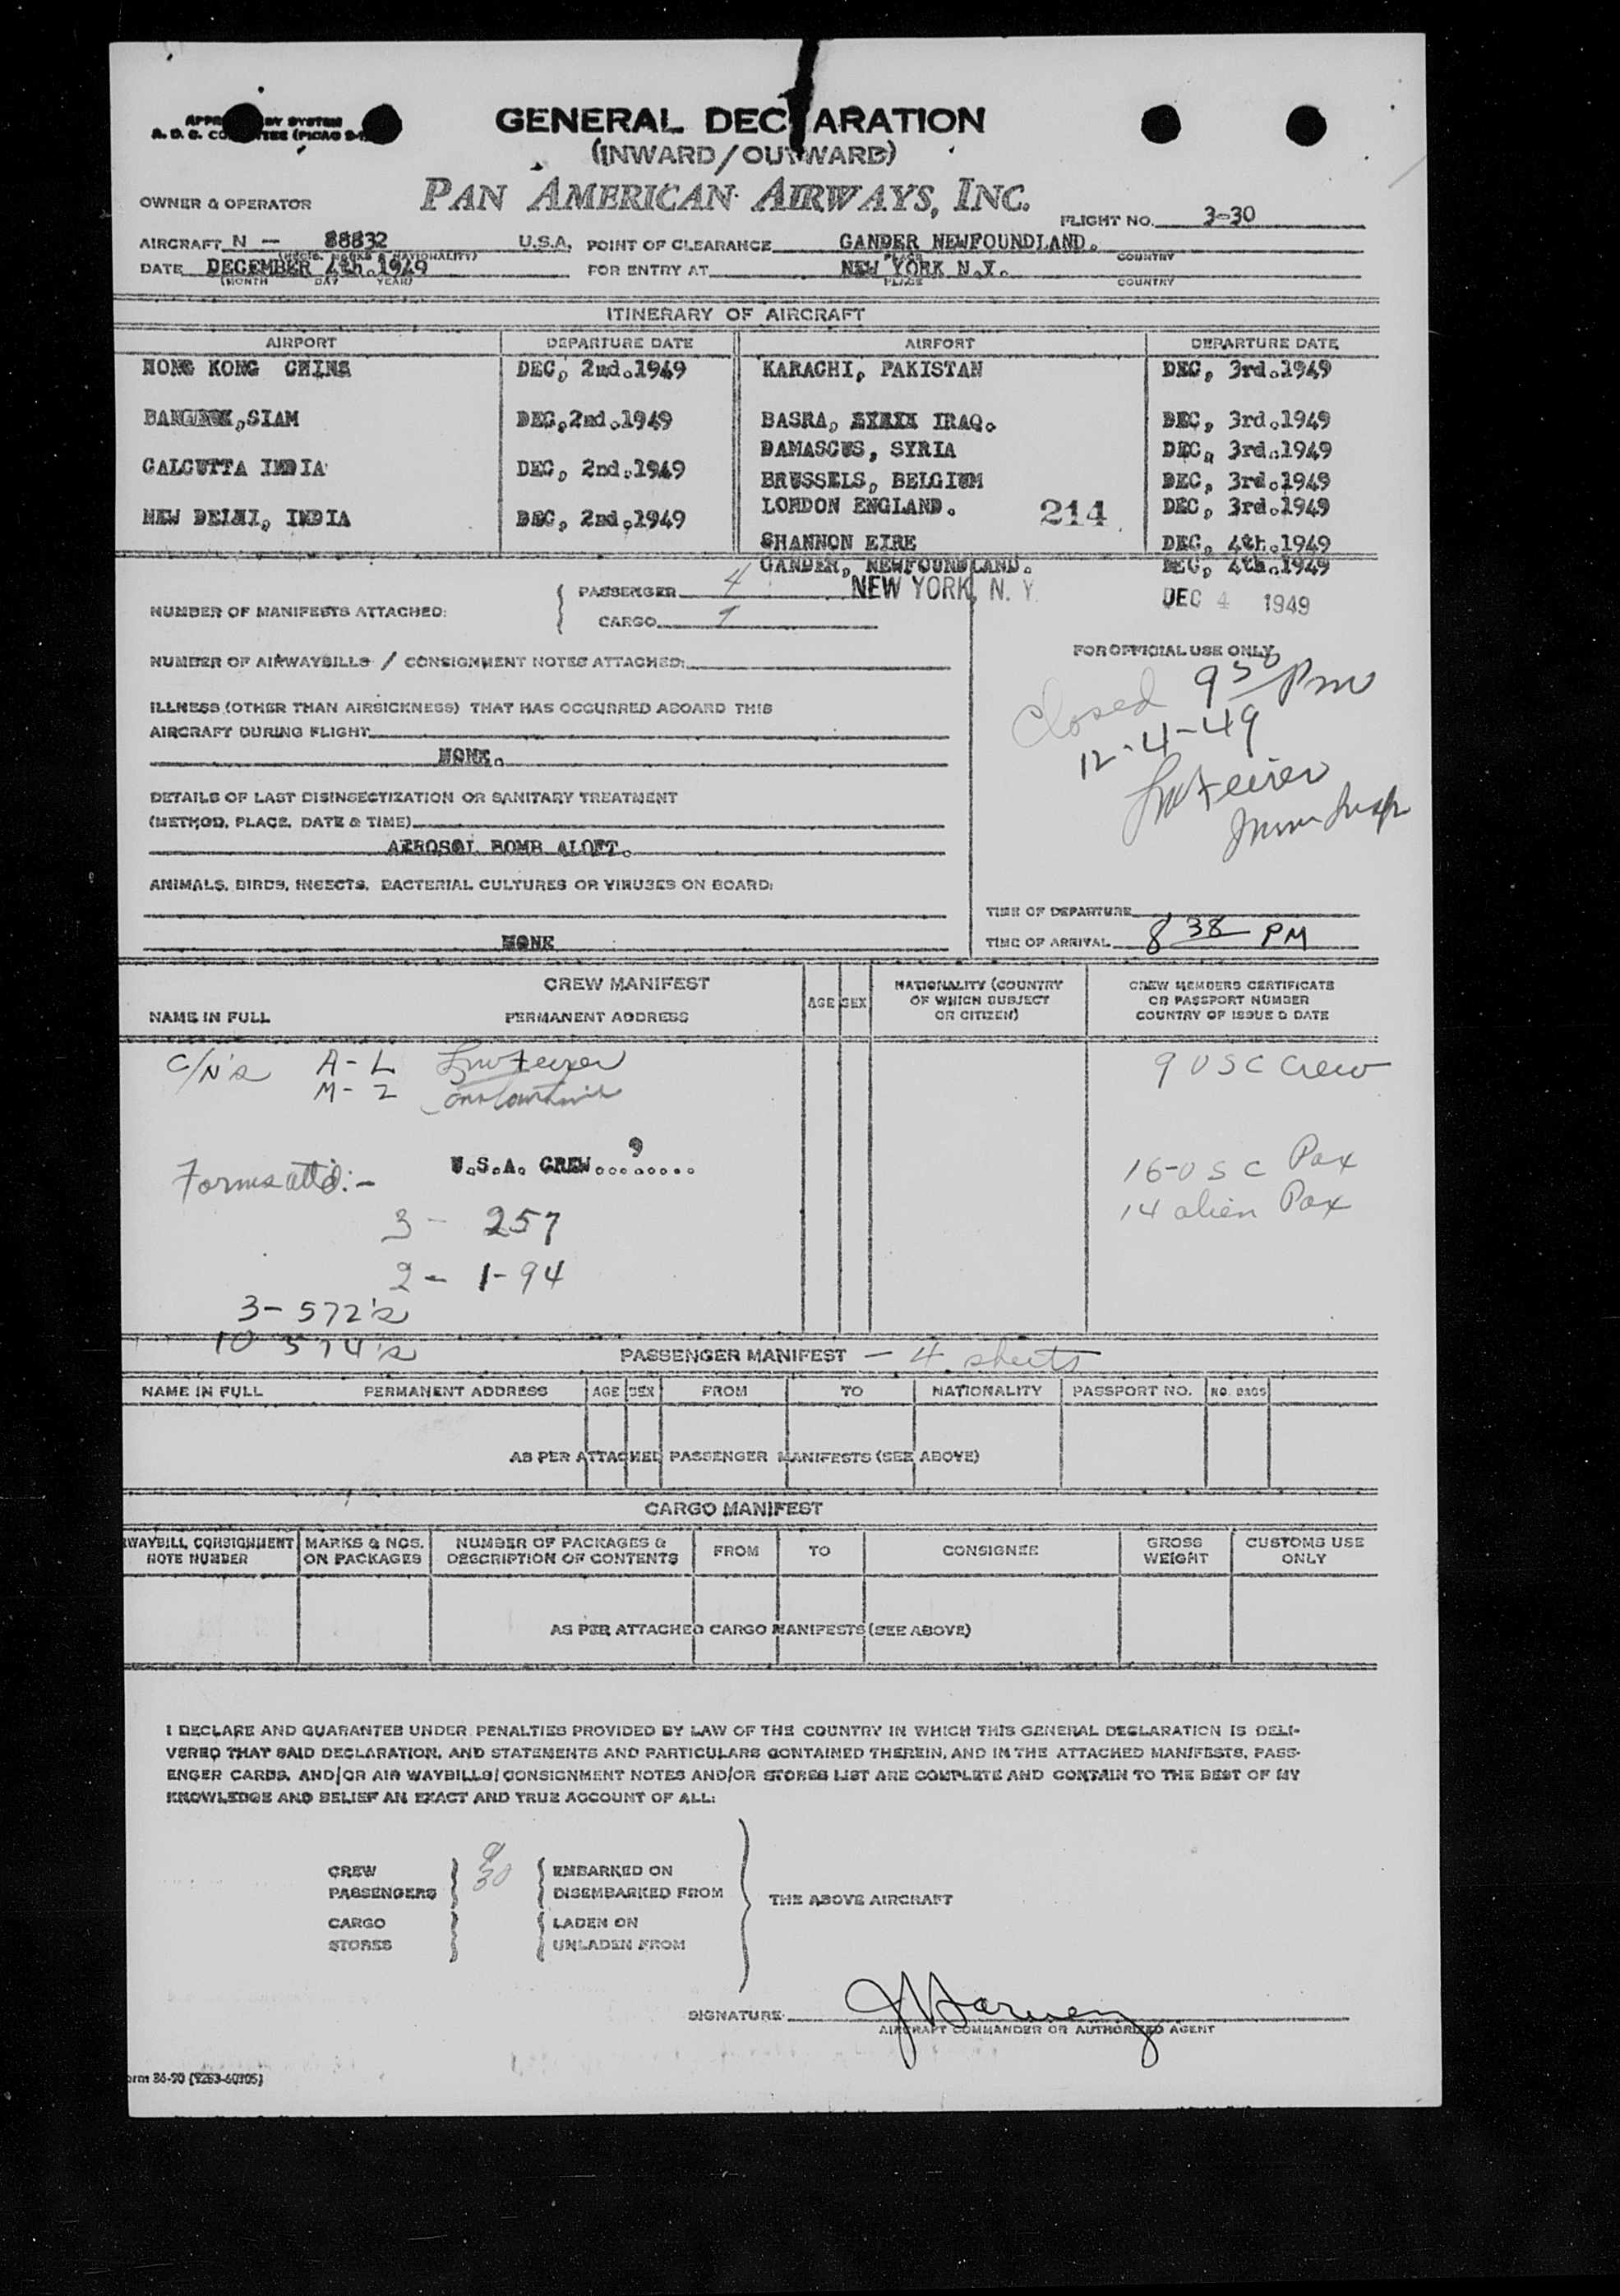 GENERAL DECLARATION
(INWARD/OUTWARD)
OWNER & OPERATOR PAN AMERICAN AIRWAYS, INC.
FLIGHT NO. 3-30
AIRCRAFT N - 88832 U.S.A. POINT OF CLEARANCE GANDER NEWFOUNDLAND.
PLACE COUNTRY
DATE DECEMBER 4th.1949 FOR ENTRY AT NEW YORK N.Y.
(MONTH DAY YEAR) PLACE COUNTRY
ITINERARY OF AIRCRAFT
AIRPORT DEPARTURE DATE AIRPORT DEPARTURE DATE
HONG KONG CHINA DEC, 2nd.1949 KARACHI, PAKISTAN DEC, 3rd.1949
BANGKOK,SIAM DEC,2nd.1949 BASRA, IRAQ. DEC, 3rd.1949
DAMASCUS, SYRIA DEC, 3rd.1949
CALCUTTA INDIA DEC, 2nd.1949 BRUSSELS, BELGIUM DEC, 3rd.1949
LONDON ENGLAND. 214 DEC, 3rd.1949
NEW DELHI, INDIA DEC, 2nd.1949
SHANNON EIRE DEC, 4th.1949
GANDER, NEWFOUNDLAND. DEC, 4th.1949
NEW YORK, N. Y. DEC 4 1949
NUMBER OF MANIFESTS ATTACHED:
PASSENGER 4
CARGO 1
NUMBER OF AIRWAYBILLS / CONSIGNMENT NOTES ATTACHED:
FOR OFFICIAL USE ONLY
Closed 9 30 Pm
12-4-49
ILLNESS (OTHER THAN AIRSICKNESS) THAT HAS OCCURRED ABOARD THIS
AIRCRAFT DURING FLIGHT
NONE.
DETAILS OF LAST DISINSECTIZATION OR SANITARY TREATMENT
(METHOD, PLACE, DATE & TIME)
AEROSOL BOMB ALOFT.
ANIMALS, BIRDS, INSECTS, BACTERIAL CULTURES OR VIRUSES ON BOARD:
NONE
TIME OF DEPARTURE
TIME OF ARRIVAL 8 38 PM
CREW MANIFEST
NAME IN FULL PERMANENT ADDRESS AGE SEX NATIONALITY (COUNTRY OF WHICH SUBJECT OR CITIZEN) CREW MEMBERS CERTIFICATE OR PASSPORT NUMBER COUNTRY OF ISSUE & DATE
C/N's A-L
M-Z
9 USC Crew
U.S.A. CREW...9.....
16-USC Pax
14 alien Pax
Forms att'd:-
3 - 257
2 - 1-94
3- 572's
10 574's
PASSENGER MANIFEST - 4 sheets
NAME IN FULL PERMANENT ADDRESS AGE SEX FROM TO NATIONALITY PASSPORT NO. NO. BAGS
AS PER ATTACHED PASSENGER MANIFESTS (SEE ABOVE)
CARGO MANIFEST
WAYBILL CONSIGNMENT NOTE NUMBER MARKS & NOS. ON PACKAGES NUMBER OF PACKAGES & DESCRIPTION OF CONTENTS FROM TO CONSIGNEE GROSS WEIGHT CUSTOMS USE ONLY
AS PER ATTACHED CARGO MANIFESTS (SEE ABOVE)
I DECLARE AND GUARANTEE UNDER PENALTIES PROVIDED BY LAW OF THE COUNTRY IN WHICH THIS GENERAL DECLARATION IS DELI-
VERED THAT SAID DECLARATION, AND STATEMENTS AND PARTICULARS CONTAINED THEREIN, AND IN THE ATTACHED MANIFESTS, PASS-
ENGER CARDS, AND/OR AIR WAYBILLS/CONSIGNMENT NOTES AND/OR STORES LIST ARE COMPLETE AND CONTAIN TO THE BEST OF MY
KNOWLEDGE AND BELIEF AN EXACT AND TRUE ACCOUNT OF ALL:
CREW 9 EMBARKED ON
PASSENGERS 30 DISEMBARKED FROM
THE ABOVE AIRCRAFT
CARGO LADEN ON
STORES UNLADEN FROM
SIGNATURE
AIRCRAFT COMMANDER OR AUTHORIZED AGENT
orm 36-90